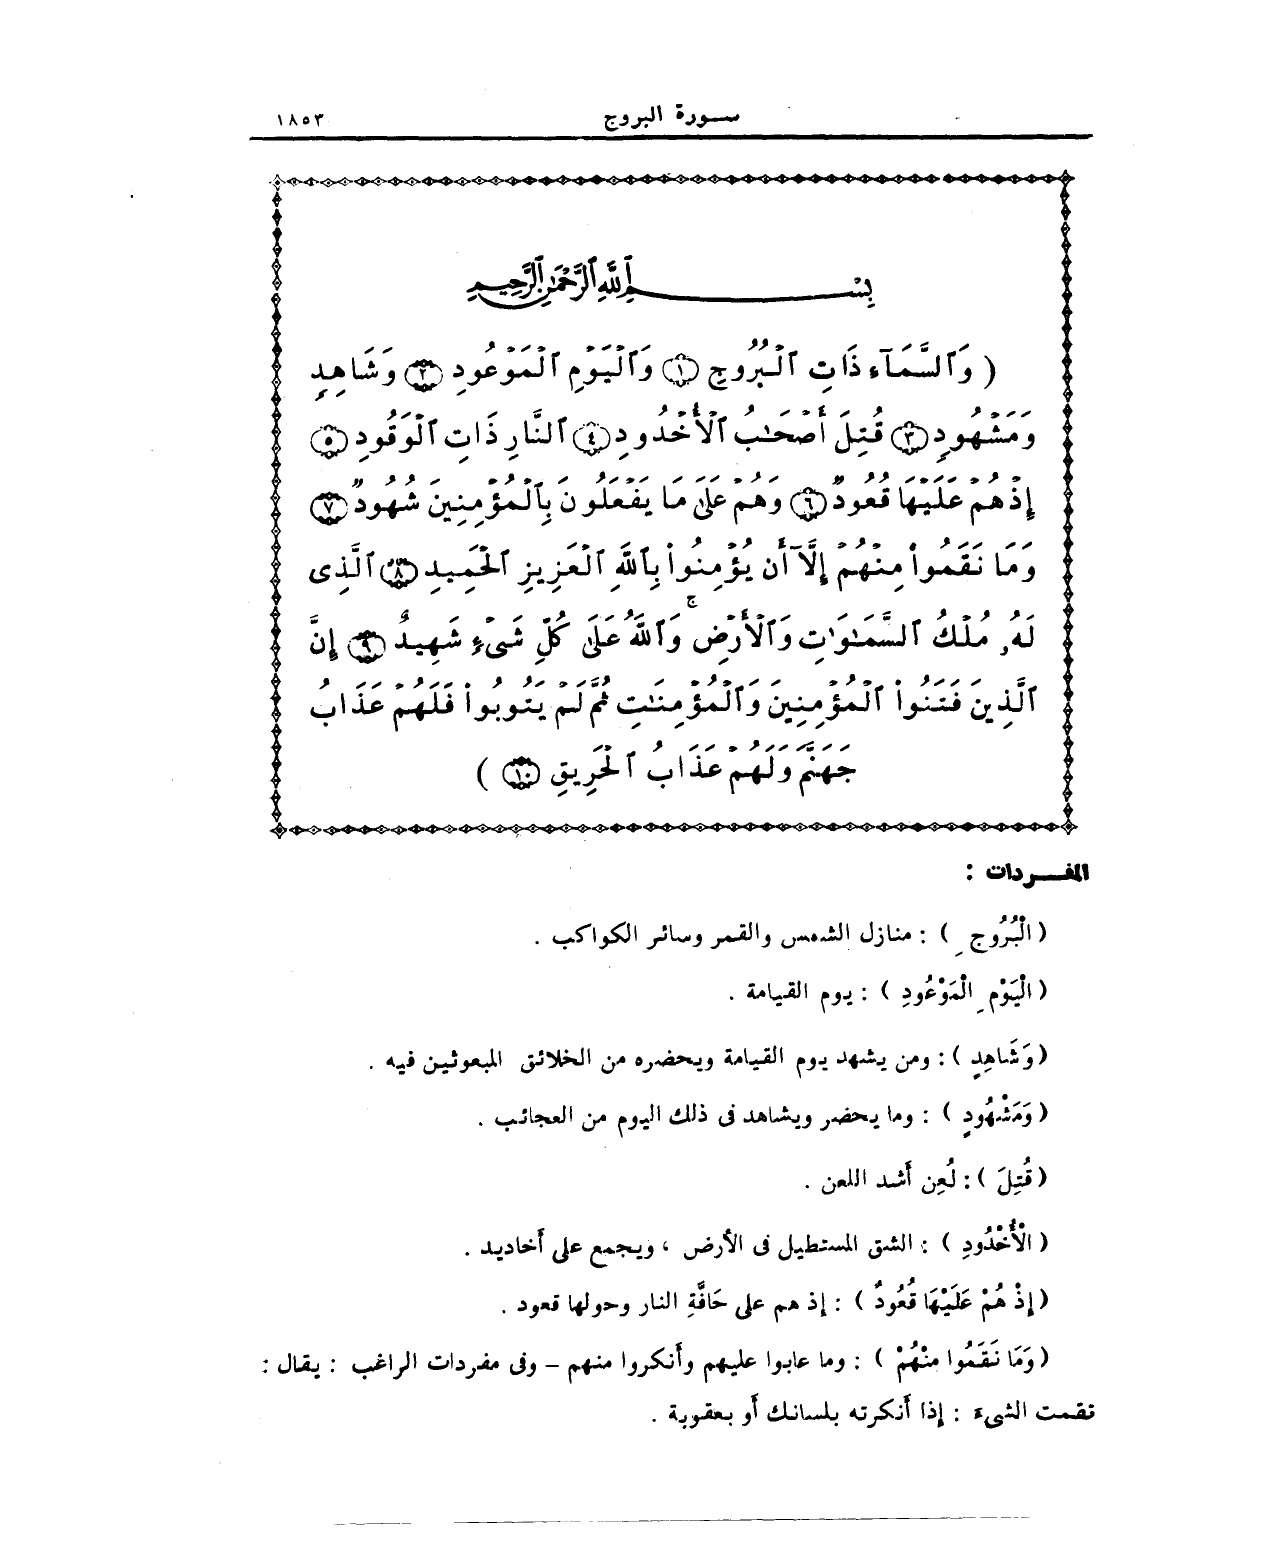 سـورة البروج ١٨٥٣
بِسْمِ ٱللَّهِ ٱلرَّحْمَٰنِ ٱلرَّحِيمِ
( وَٱلسَّمَآءِ ذَاتِ ٱلْبُرُوجِ ١ وَٱلْيَوْمِ ٱلْمَوْعُودِ ٢ وَشَاهِدٍ
وَمَشْهُودٍ ٣ قُتِلَ أَصْحَٰبُ ٱلْأُخْدُودِ ٤ ٱلنَّارِ ذَاتِ ٱلْوَقُودِ ٥
إِذْ هُمْ عَلَيْهَا قُعُودٌ ٦ وَهُمْ عَلَىٰ مَا يَفْعَلُونَ بِٱلْمُؤْمِنِينَ شُهُودٌ ٧
وَمَا نَقَمُوا۟ مِنْهُمْ إِلَّآ أَن يُؤْمِنُوا۟ بِٱللَّهِ ٱلْعَزِيزِ ٱلْحَمِيدِ ٨ ٱلَّذِى
لَهُۥ مُلْكُ ٱلسَّمَٰوَٰتِ وَٱلْأَرْضِ ۚ وَٱللَّهُ عَلَىٰ كُلِّ شَىْءٍ شَهِيدٌ ٩ إِنَّ
ٱلَّذِينَ فَتَنُوا۟ ٱلْمُؤْمِنِينَ وَٱلْمُؤْمِنَٰتِ ثُمَّ لَمْ يَتُوبُوا۟ فَلَهُمْ عَذَابُ
جَهَنَّمَ وَلَهُمْ عَذَابُ ٱلْحَرِيقِ ١٠ )
المفــردات :
( الْبُرُوجِ ) : منازل الشمس والقمر وسائر الكواكب .
( الْيَوْمِ الْمَوْعُودِ ) : يوم القيامة .
( وَشَاهِدٍ ) : ومن يشهد يوم القيامة ويحضره من الخلائق المبعوثين فيه .
( وَمَشْهُودٍ ) : وما يحضر ويشاهد فى ذلك اليوم من العجائب .
( قُتِلَ ) : لُعِن أَشد اللعن .
( الْأُخْدُودِ ) : الشق المستطيل فى الأَرض ، ويجمع على أَخاديد .
( إِذْ هُمْ عَلَيْهَا قُعُودٌ ) : إِذ هم على حَافَّةِ النار وحولها قعود .
( وَمَا نَقَمُوا مِنْهُمْ ) : وما عابوا عليهم وأَنكروا منهم – وفى مفردات الراغب : يقال :
نقمت الشىء : إذا أَنكرته بلسانك أَو بعقوبة .